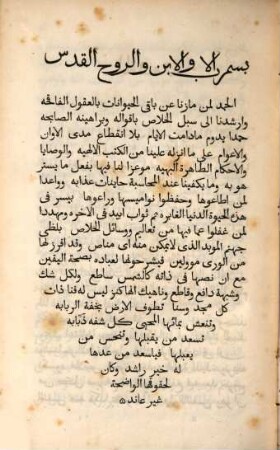 بسم الاب والابن والروح القدس
الحمد لمن مازنا عن باقي الحيوانات بالعقول الفايقه
وارشدنا الى سبل الخلاص باقواله وبراهينه الصايبه
حمدا يدوم مادامت الايام بلا انقطاع مدى الاوان
والاعوام على ما انزله علينا من الكتب الالهيه والوصايا
والاحكام الطاهرة البهيه موعزا لنا فيها بفعل ما يستر
هو به وما يكفينا عند المحاسبة حاينات عذابه وواعدا
لمن اطاعوها وحفظوا نواميسها وراعوها بيسر في
هذه الحيوة الدنيا الغابره ثم ثواب ابيد في الاخره ومهددا
لمن غفلوا عما فيها من تعاليم ووسائل الخلاص بلظى
جهنم الموبد الذى لايمكن منه اى مناص وقد افرز لها
من الورى موولين فيشرحوها لعباده بصحة اليقين
مع ان نصها في ذاته كالشمس ساطع ولكل شك
وشبهة دافع وقاطع وناهيك الهاكنز ليس له فنا ذات
كل مجد وسنا تطوف الارض بخفة الربابه
وتنعش بمائها المحيى كل شفه ذبابه
تسعد من يقبلها وتنحس من
يعبلها فياسعد من عدها
له خير راشد وكان
لحقوقها الواضحة
غير عاند